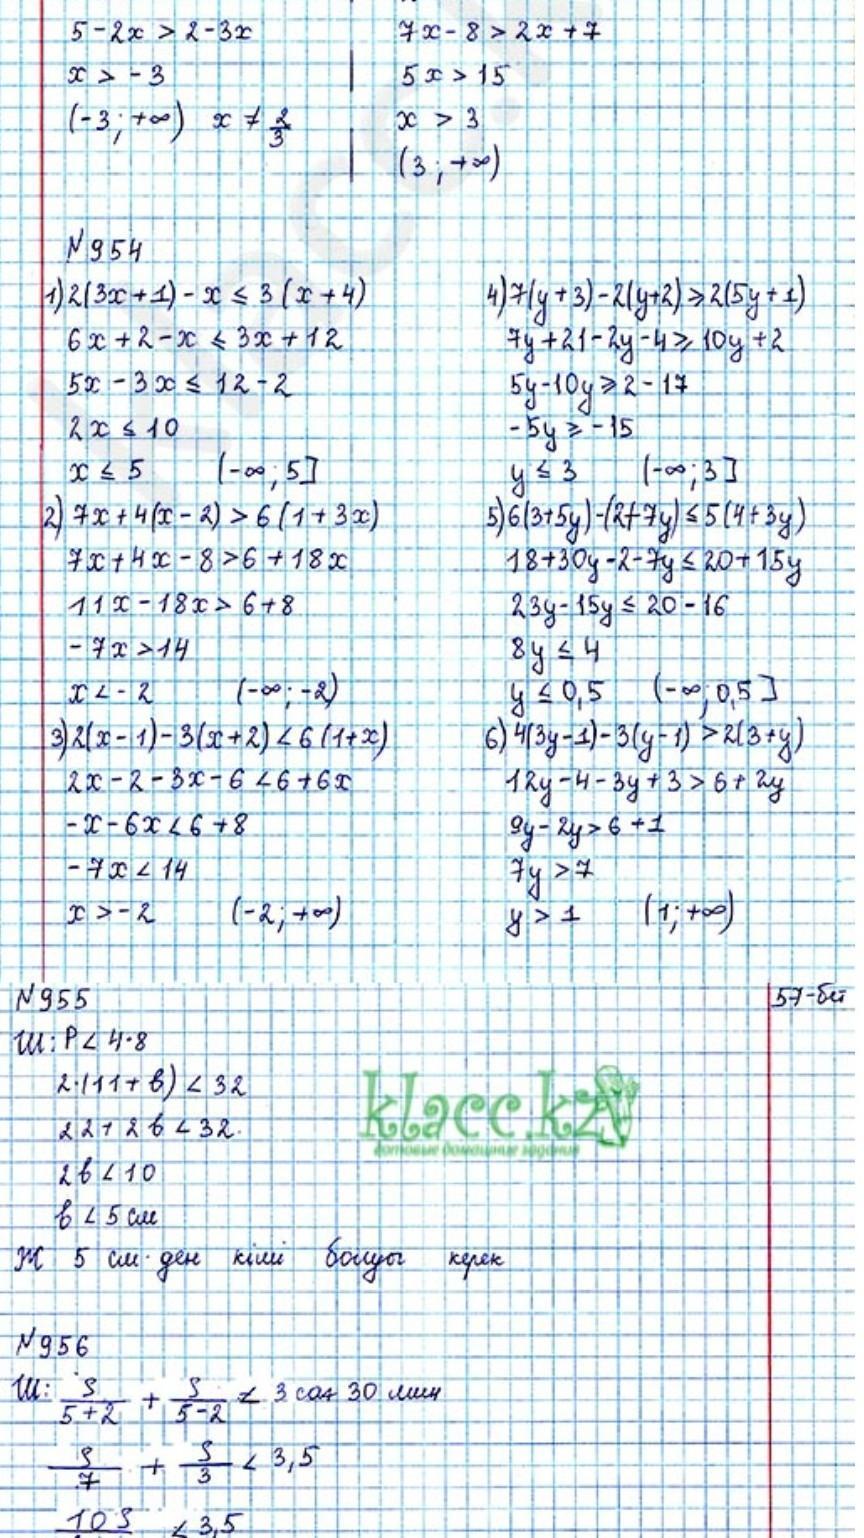 5 - 2x > 2 - 3x
x > - 3
(-3; +∞) x ≠ 2/3
7x - 8 > 2x + 7
5x > 15
x > 3
(3; +∞)
N954
1) 2(3x + 1) - x ≤ 3(x + 4)
6x + 2 - x ≤ 3x + 12
5x - 3x ≤ 12 - 2
2x ≤ 10
x ≤ 5 (-∞; 5]
2) 7x + 4(x - 2) > 6(1 + 3x)
7x + 4x - 8 > 6 + 18x
11x - 18x > 6 + 8
- 7x > 14
x < - 2 (-∞; -2)
3) 2(x - 1) - 3(x + 2) < 6(1 + x)
2x - 2 - 3x - 6 < 6 + 6x
- x - 6x < 6 + 8
- 7x < 14
x > - 2 (-2; +∞)
4) 7(y + 3) - 2(y + 2) ≥ 2(5y + 1)
7y + 21 - 2y - 4 ≥ 10y + 2
5y - 10y ≥ 2 - 17
- 5y ≥ - 15
y ≤ 3 (-∞; 3]
5) 6(3 + 5y) - (2 + 7y) ≤ 5(4 + 3y)
18 + 30y - 2 - 7y ≤ 20 + 15y
23y - 15y ≤ 20 - 16
8y ≤ 4
y ≤ 0,5 (-∞; 0,5]
6) 4(3y - 1) - 3(y - 1) > 2(3 + y)
12y - 4 - 3y + 3 > 6 + 2y
9y - 2y > 6 + 1
7y > 7
y > 1 (1; +∞)
N955
57-бет
Ш: P < 4·8
2·(11 + в) < 32
22 + 2в < 32
2в < 10
в < 5 см
Ж 5 см-ден кіші болуы керек
klacc.kz
готовые домашние задания
N956
Ш: S/(5+2) + S/(5-2) < 3 сағ 30 мин
S/7 + S/3 < 3,5
10S < 3,5